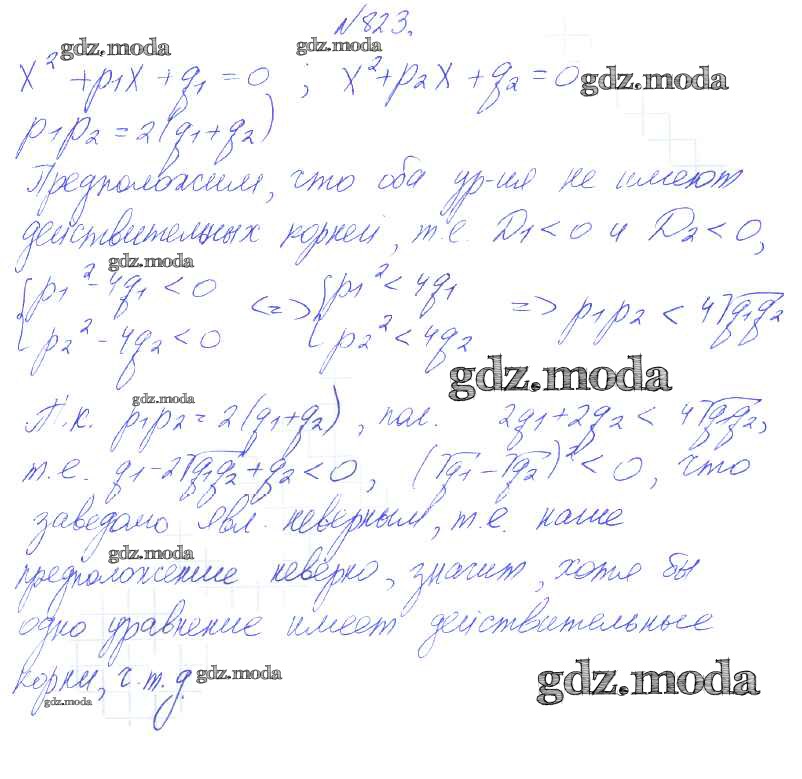 №823.
gdz.moda gdz.moda
x² + p₁x + q₁ = 0 ; x² + p₂x + q₂ = 0 gdz.moda
p₁p₂ = 2(q₁+q₂)
Предположим, что оба ур-ия не имеют
действительных корней, т.е. D₁<0 и D₂<0,
gdz.moda
{p₁²-4q₁<0 <=> {p₁²<4q₁ => p₁p₂ < 4√q₁q₂
{p₂²-4q₂<0 {p₂²<4q₂
gdz.moda
gdz.moda
Т.к. p₁p₂=2(q₁+q₂), пол. 2q₁+2q₂ < 4√q₁q₂,
т.е. q₁-2√q₁q₂+q₂<0, (√q₁-√q₂)²<0, что
заведомо явл. неверным, т.е. наше
gdz.moda
предположение неверно, значит, хотя бы
одно уравнение имеет действительные
корни, ч.т.д. gdz.moda gdz.moda
gdz.moda